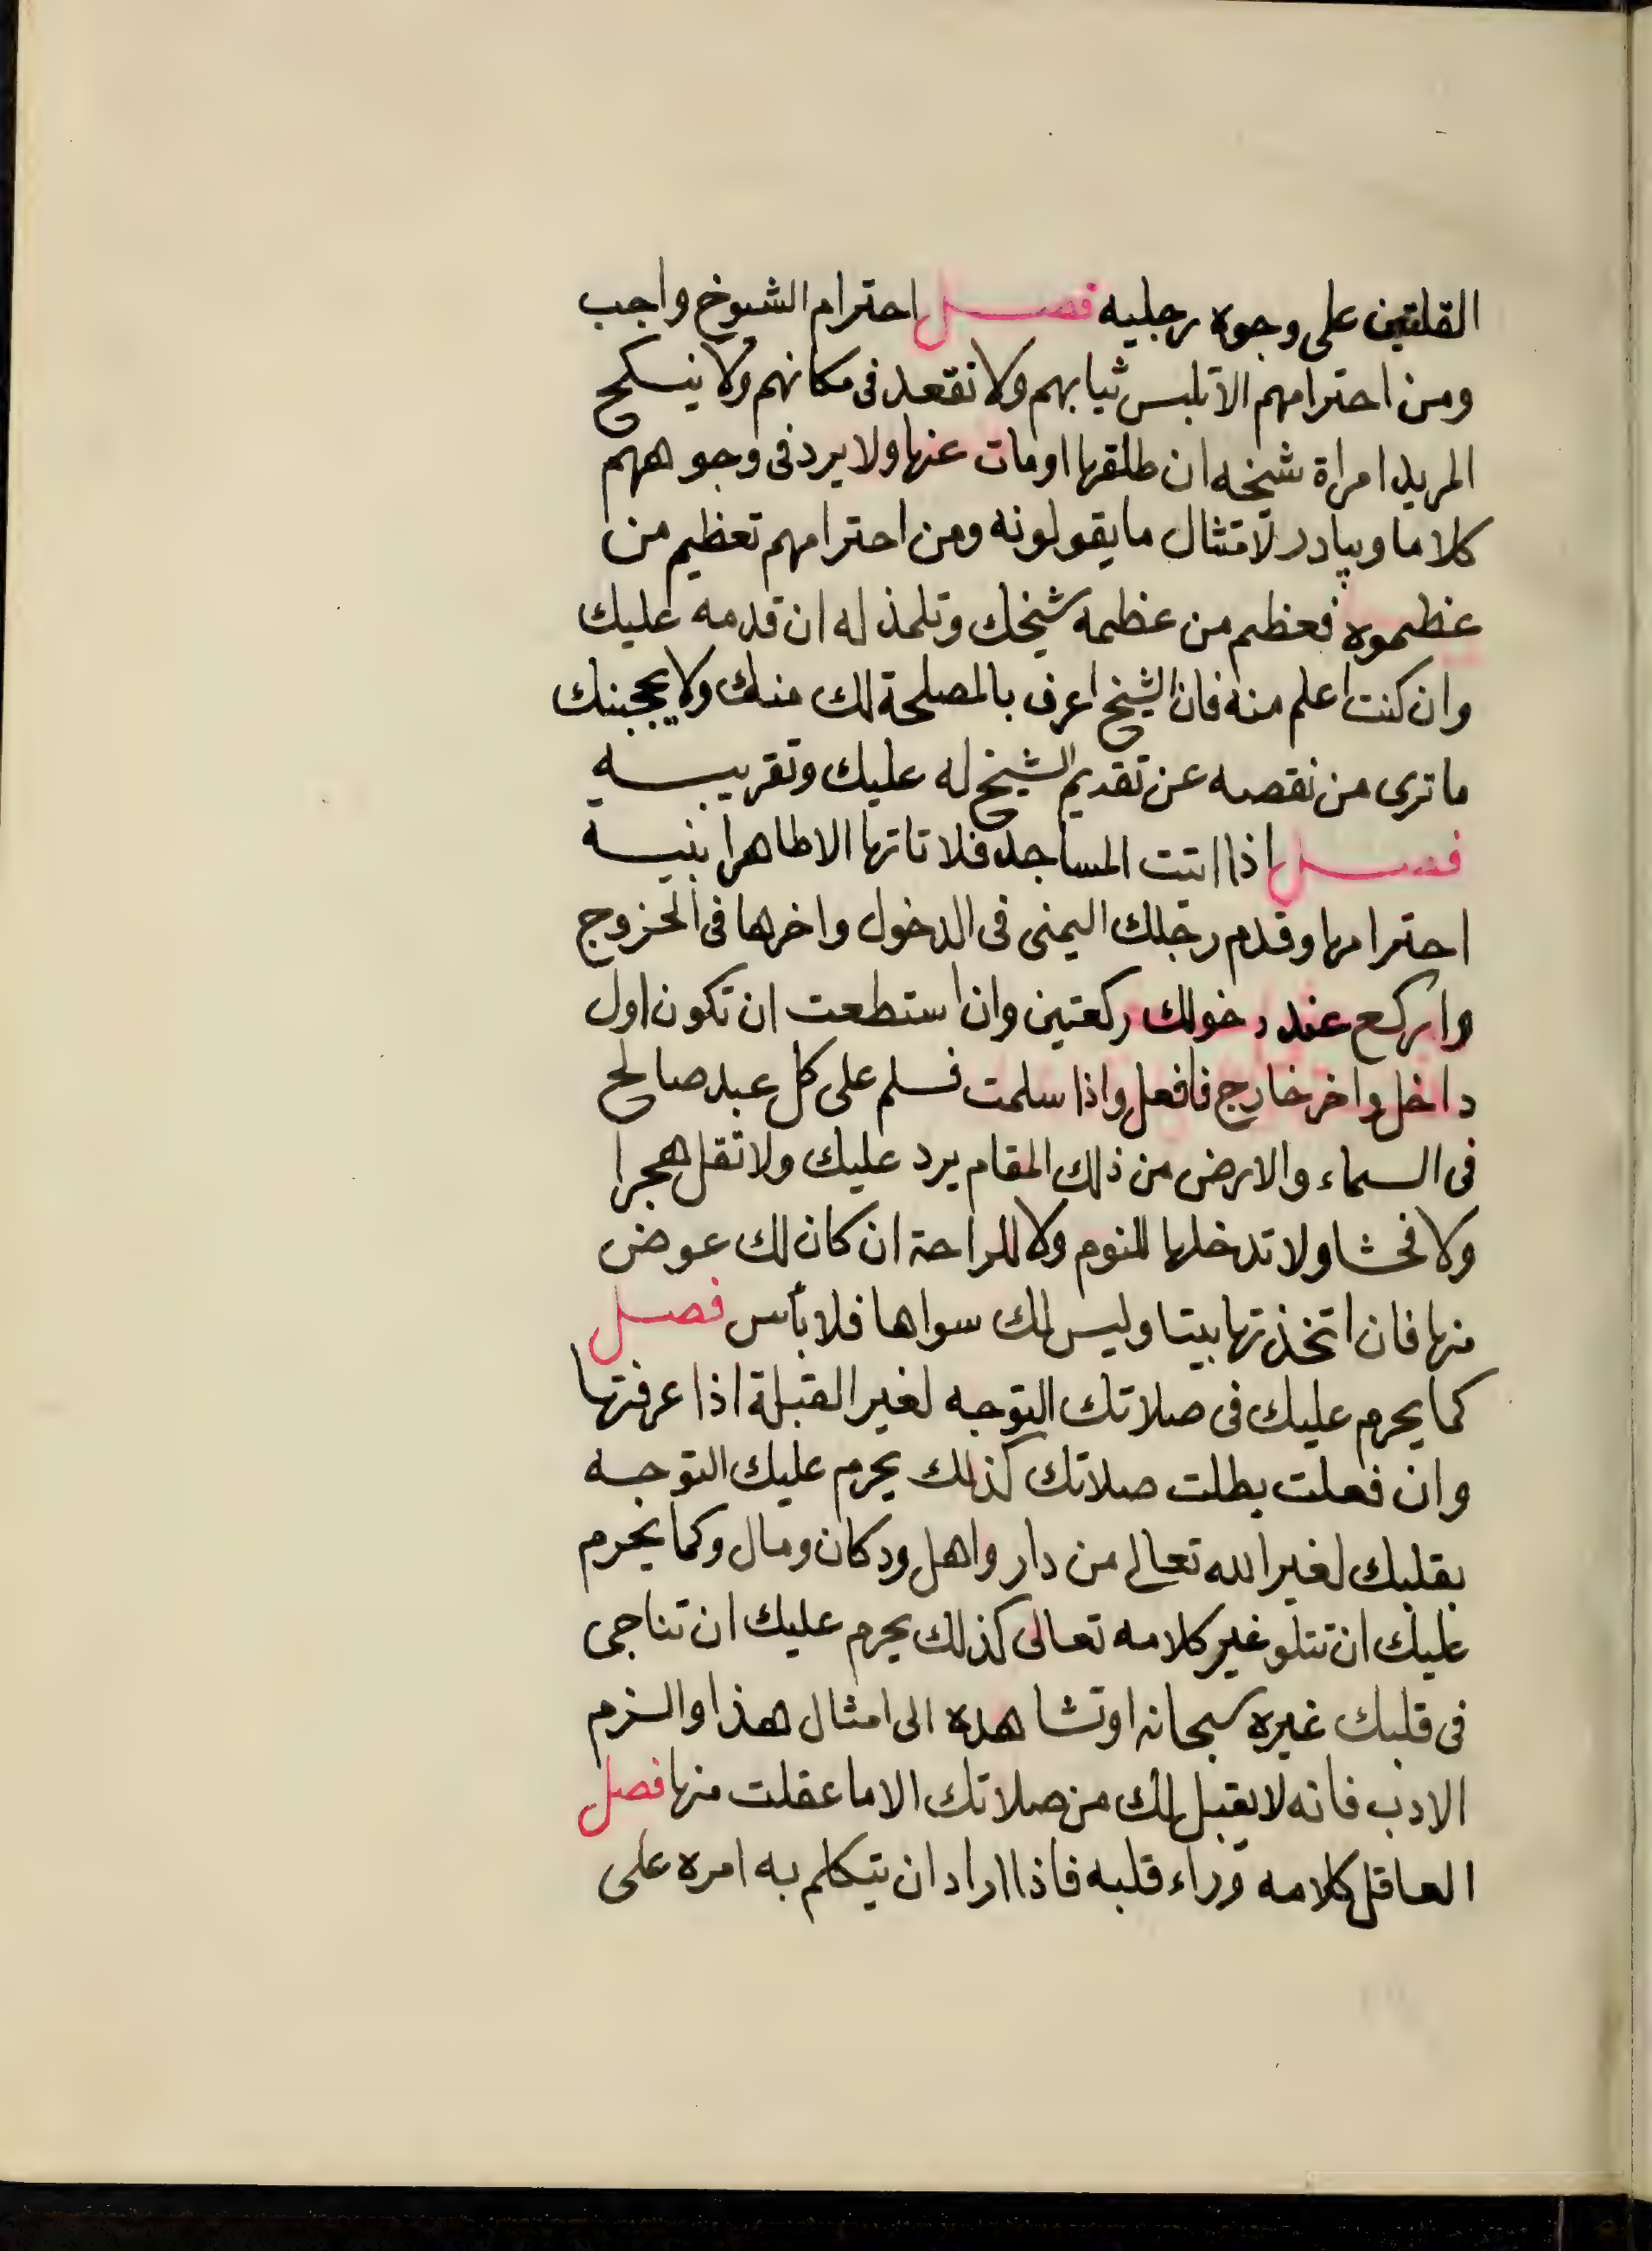 القلتين على وجوه رجليه فصل احترام الشيوخ واجب
ومن احترامهم الا تلبس ثيابهم ولا تقعد فى مكانهم ولا ينكح
المريد امراة شيخه ان طلقها او مات عنها ولا يرد فى وجوههم
كلاما ويبادر لامتثال ما يقولونه ومن احترامهم تعظيم من
عظموه فعظم من عظمه شيخك وتلمذ له ان قدمه عليك
وان كنت اعلم منه فان الشيخ اعرف بالمصلحة لك منك ولا يحجبنك
ما ترى من نقصه عن تقديم الشيخ له عليك وتقريبه
فصل اذا اتت المساجد فلا تاتها الا طاهرا بنية
احترامها وقدم رجلك اليمنى فى الدخول واخرها فى الخروج
واركع عند دخولك ركعتين وان استطعت ان تكون اول
داخل واخر خارج فافعل واذا سلمت فسلم على كل عبد صالح
فى السماء والارض من ذلك المقام يرد عليك ولا تقل هجرا
ولا فحشا ولا تدخلها للنوم ولا للراحة ان كان لك عوض
منها فان اتخذتها بيتا وليس لك سواها فلا بأس فصل
كما يحرم عليك فى صلاتك التوجه لغير القبلة اذا عرفتها
وان فعلت بطلت صلاتك كذلك يحرم عليك التوجه
بقلبك لغير الله تعالى من دار واهل ودكان ومال وكما يحرم
عليك ان تتلو غير كلامه تعالى كذلك يحرم عليك ان تناجى
فى قلبك غيره سبحانه او تشاهده الى امثال هذا والزم
الادب فانه لا يقبل لك من صلاتك الا ما عقلت منها فصل
العاقل كلامه وراء قلبه فاذا اراد ان يتكلم به امره على